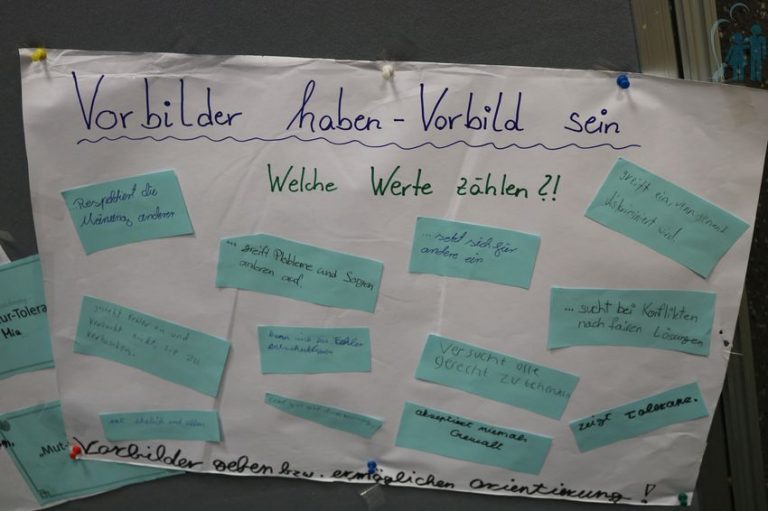 Vorbilder haben - Vorbild sein
Welche Werte zählen?!
Respektiert die
Meinung anderer
... greift Probleme und Sorgen
anderen auf.
... setzt sich für
andere ein
greift ein, wenn jemand
diskriminiert wird.
... sucht bei Konflikten
nach fairen Lösungen
gesteht Fehler ein und
versucht nicht, sie zu
kann sich für Fehler
entschuldigen
Versucht alle
gerecht zu behandeln
akzeptiert niemals
Gewalt
zeigt Toleranz.
Vorbilder geben bzw. ermöglichen orientierung!
ur-Tolera
Mia
„Mut-